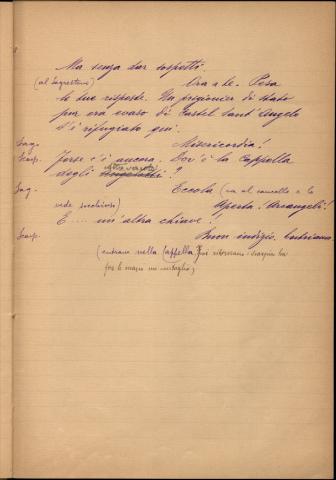 Ma senza dar sospetti.
(al Sagrestano) Ora a te. Pesa
le tue risposte. Un prigionier di Stato
pur ora evaso di Castel Sant'Angelo
s'è rifugiato qui.
Sag. Misericordia!
Scarp. Forse c'è ancora. Dov'è la Cappella
degli
Sag. Eccola (va al cancello e lo
vede socchiuso) Aperta! Arcangeli!
E .... un'altra chiave!
Scarp. Buon indizio. Entriamo.
(entrano nella Cappella, poi ritornano: Scarpia ha
fra le mani un ventaglio)